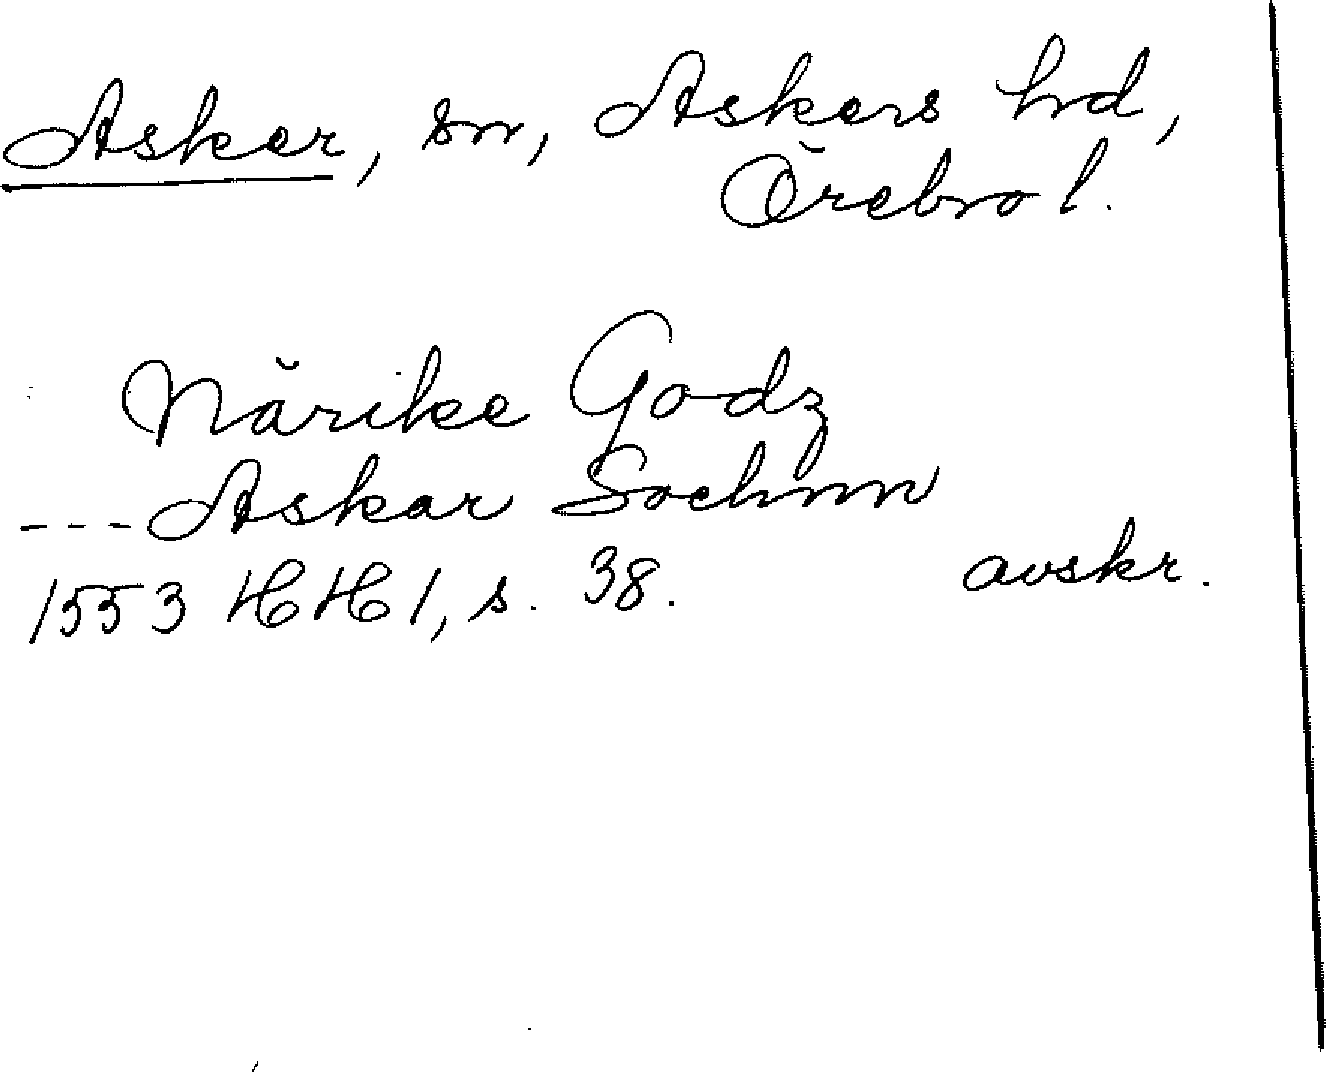 Asker, sn, Askers hrd,
Örebro l.
Närike Godz
--- Askar Sochnn
1553 HH 1, s. 38. avskr.